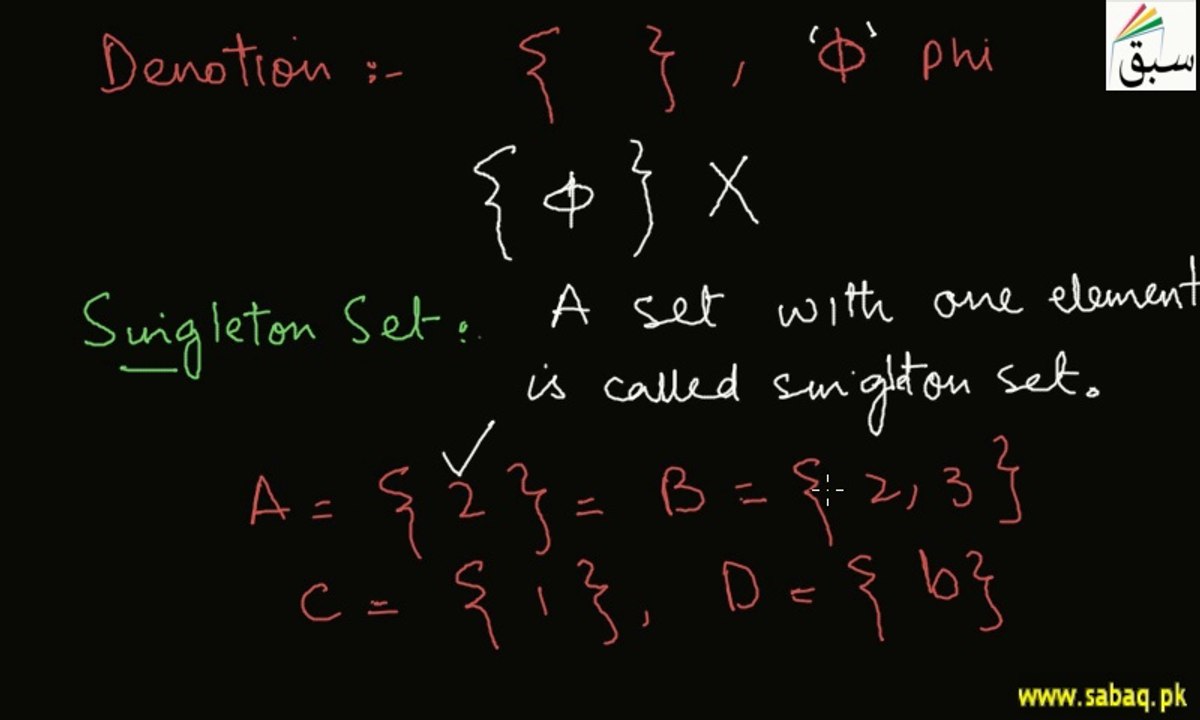 Denotion :- { } , 'Φ' phi
سبق
{ Φ } X
Singleton Set : A set with one element
is called singleton set.
A = { 2 } = B = { 2, 3 }
C = { 1 } , D = { b }
www.sabaq.pk